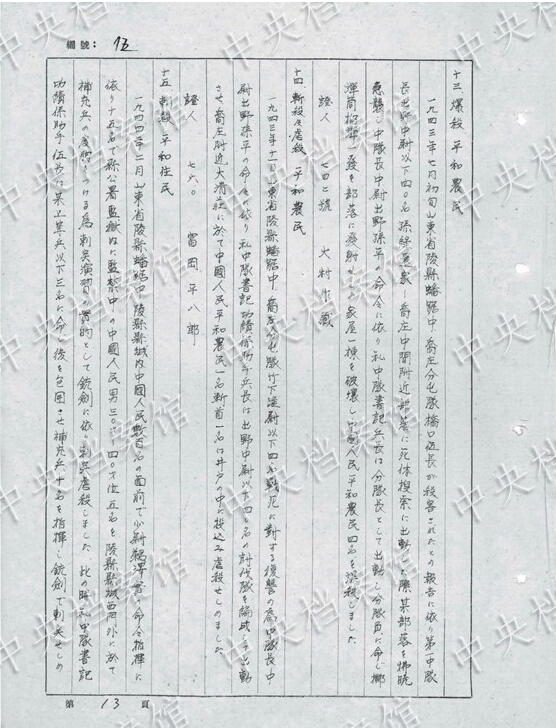 編號：伍
十三、爆殺 平和農民
一九四三年七月初旬山東省陵縣蟠踞中 喬庄分屯隊橋口伍長が殺害されたとの報告に依り第一中隊
長出野中尉以下四〇名 孫綠夏家－喬庄中間附近部落に死体搜索に出動した際某部落を拂曉
急襲し中隊長中尉出野孫平の命令に依り私中隊書記兵長は分隊長として出動し分隊員に命じ擲
彈筒榴彈一發を部落に發射せしめ家屋一棟を破壞し中國人民平和農民四名を爆殺しました
證人 七四二號 大村
十四、斬殺及虐殺 平和農民
一九四三年十一月山東省陵縣蟠踞中 喬庄分屯隊竹下准尉以下四名戰死に對する復讐の為中隊長中
尉出野孫平の命令に依り私中隊書記功績係助手兵長は出野中尉以下四〇名の討伐隊を編成して出動
させ喬庄附近大清莊に於て中國人民平和農民一名斬首一名は井戸の中に投込み虐殺せしめました
證人 七六〇 富岡平八郎
十五、刺殺 平和住民
一九四四年二月山東省陵縣蟠踞中 陵縣縣城内中國人民數百名の面前で少尉 命令指揮に
依り十五名で縣公署監獄内に監禁中の中國人民男三〇才－四〇才位五名を陵縣縣城西門外に於て
補充兵の度胸をつける為刺突演習の實的として銃劍に依り刺突虐殺しました 此の時私中隊書記
功績係助手伍長は某上等兵以下三名に命じ後を包囲させ補充兵十名を指揮し銃劍で刺突せしめ
第 13 頁
中央档案馆